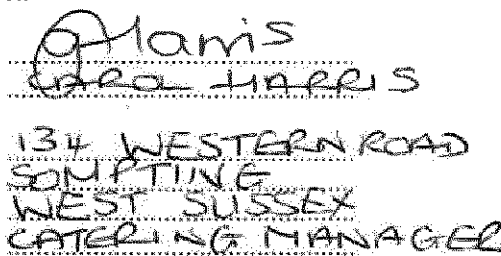 CHarris
CAROL HARRIS
134 WESTERN ROAD
SOMPTING
WEST SUSSEX
CATERING MANAGER